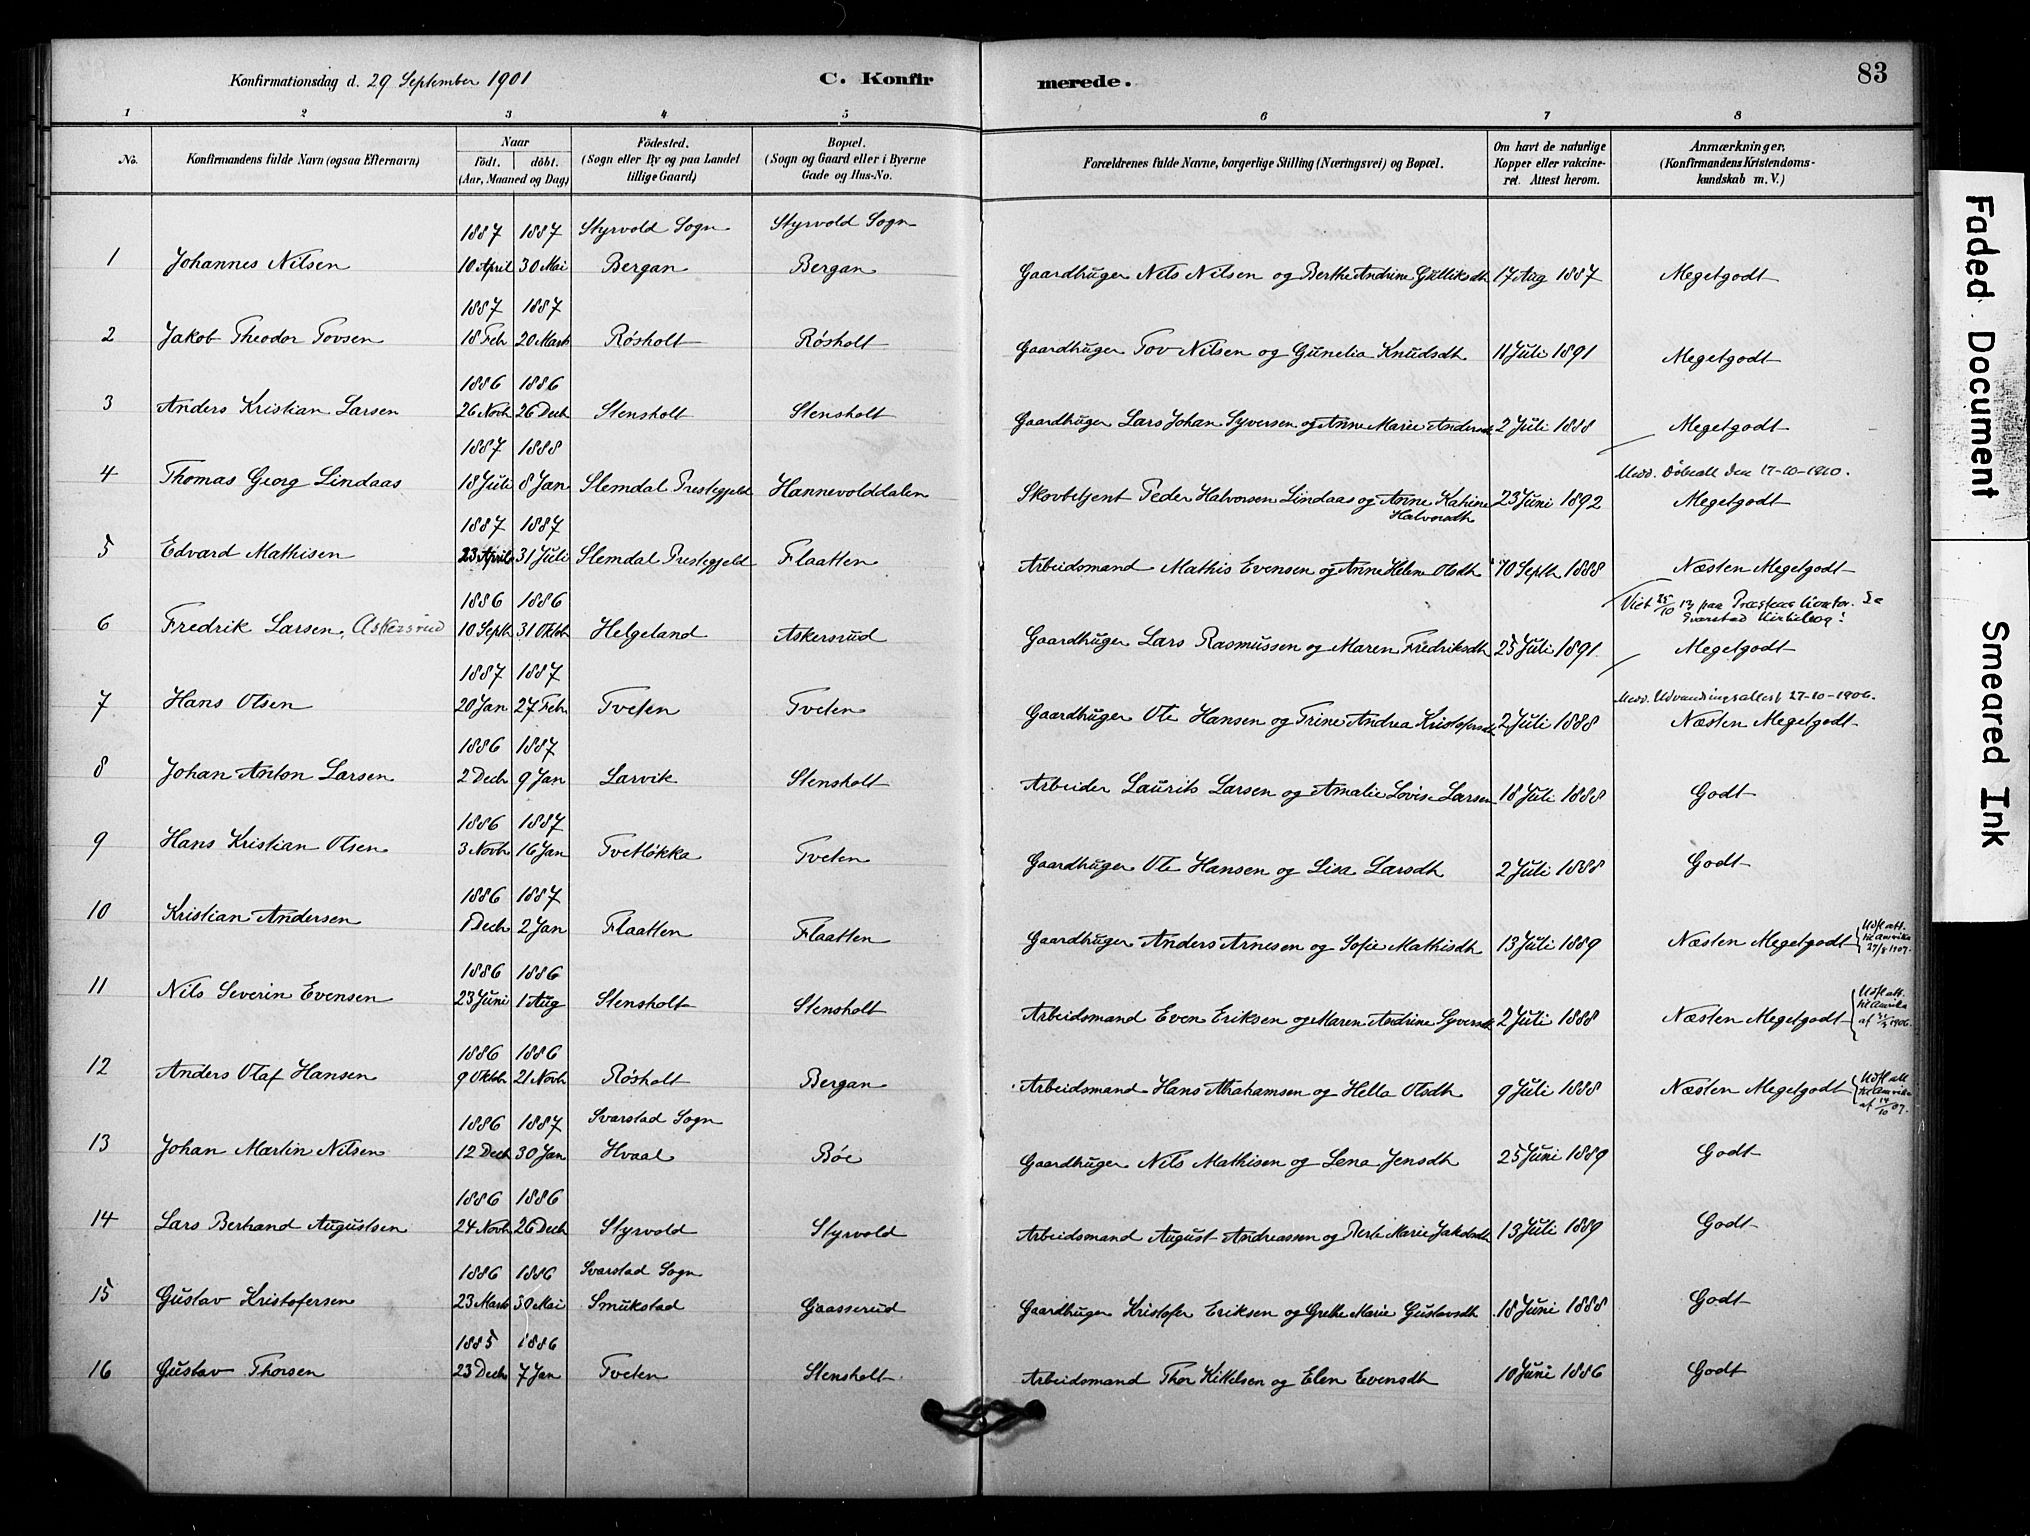 Konfirmationsdag d. 29 September 1901 C. Konfirmerede. 83
1 2 3 4 5 6 7 8
No. Konfirmandens fulde Navn (ogsaa Efternavn) Naar födt. döbt. (Aar, Maaned og Dag) Födested. (Sogn eller By og paa Landet tillige Gaard) Bopæl. (Sogn og Gaard eller i Byerne Gade og Hus-No. Forældrenes fulde Navne, borgerlige Stilling (Næringsvei) og Bopæl. Om havt de naturlige Kopper eller vakcineret. Attest herom. Anmærkninger, (Konfirmandens Kristendomskundskab m. V.)
1887 1887 Styrvold Sogn Styrvold Sogn
1 Johannes Nilsen 10 April 30 Mai Bergan Bergan Gaardbruger Nils Nilsen og Berthe Andrine Gulliksdtr 17 Aug 1887 Megetgodt
1887 1887
2 Jakob Theodor Tovsen 18 Febr 20 Marts Røsholt Røsholt Gaardbruger Tov Nilsen og Gunelia Knudsdtr 11 Juli 1891 Megetgodt
1886 1886
3 Anders Kristian Larsen 26 Novbr 26 Decbr Stensholt Stensholt Gaardbruger Lars Johan Syversen og Anne Marie Andersdtr 2 Juli 1888 Megetgodt
1887 1888 Medd. Døbeatt den 17-10-1910.
4 Thomas Georg Lindaas 18 Juli 8 Jan Slemdal Prestegjeld Hannevolddalen Skovbetjent Peder Halvorsen Lindaas og Anne Katrine Halvorsdtr 23 Juni 1892 Megetgodt
1887 1887
5 Edvard Mathisen 23 April 31 Juli Slemdal Prestegjeld Flaatten Arbeidsmand Mathis Evensen og Anne Helene Olsdtr 10 Septbr 1888 Næsten Megetgodt
1886 1886 Viet 25/10 13 paa Præstens kontor. Se Svarstad Kirkebog!
6 Fredrik Larsen, Askersrud 10 Septbr 31 Oktbr Helgeland Askersrud Gaardbruger Lars Rasmussen og Maren Fredriksdtr 25 Juli 1891 Megetgodt
1887 1887 Medd. Udvandringsattest 27-10-1906.
7 Hans Olsen 20 Jan 27 Febr Tveten Tveten Gaardbruger Ole Hansen og Trine Andrea Kristofersdtr 2 Juli 1888 Næsten Megetgodt
1886 1887
8 Johan Anton Larsen 2 Decbr 9 Jan Larvik Stensholt Arbeider Laurits Larsen og Amalie Lovise Larsen 18 Juli 1888 Godt
1886 1887
9 Hans Kristian Olsen 3 Novbr 16 Jan Tvetløkka Tveten Gaardbruger Ole Hansen og Lisa Larsdtr 2 Juli 1888 Godt
1886 1887
10 Kristian Andersen 1 Decbr 2 Jan Flaatten Flaatten Gaardbruger Anders Arnesen og Sofie Mathisdtr 13 Juli 1889 Næsten Megetgodt Udfl att. til Amerika 1907.
1886 1886
11 Nils Severin Evensen 23 Juni 1 Aug Stensholt Stensholt Arbeidsmand Even Eriksen og Maren Andrine Syversdtr 2 Juli 1888 Næsten Megetgodt Udfl att. til Amerika af 1906.
1886 1886
12 Anders Olaf Hansen 9 Oktbr 21 Novbr Røsholt Bergan Arbeidsmand Hans Abrahamsen og Hella Olsdtr 9 Juli 1888 Næsten Megetgodt Udfl att til Amerika af 14/10 07.
1886 1887 Svarstad Sogn
13 Johan Martin Nilsen 12 Decbr 30 Jan Hvaal Bøe Gaardbruger Nils Mathisen og Lena Jensdtr 25 Juni 1889 Godt
1886 1886
14 Lars Bertrand Augustsen 24 Novbr 26 Decbr Styrvold Styrvold Arbeidsmand August Andreassen og Berte Marie Jakobsdtr 13 Juli 1889 Godt
1886 1886 Svarstad Sogn
15 Gustav Kristofersen 23 Marts 30 Mai Smukstad Gaasserud Gaardbruger Kristofer Eriksen og Grethe Marie Gustavsdtr 18 Juni 1888 Godt
1885 1886
16 Gustav Thorsen 23 Decbr 7 Jan Tveten Stensholt Arbeidsmand Thor Kittelsen og Elen Evensdtr 10 Juni 1886 Godt
Faded Document
Smeared Ink